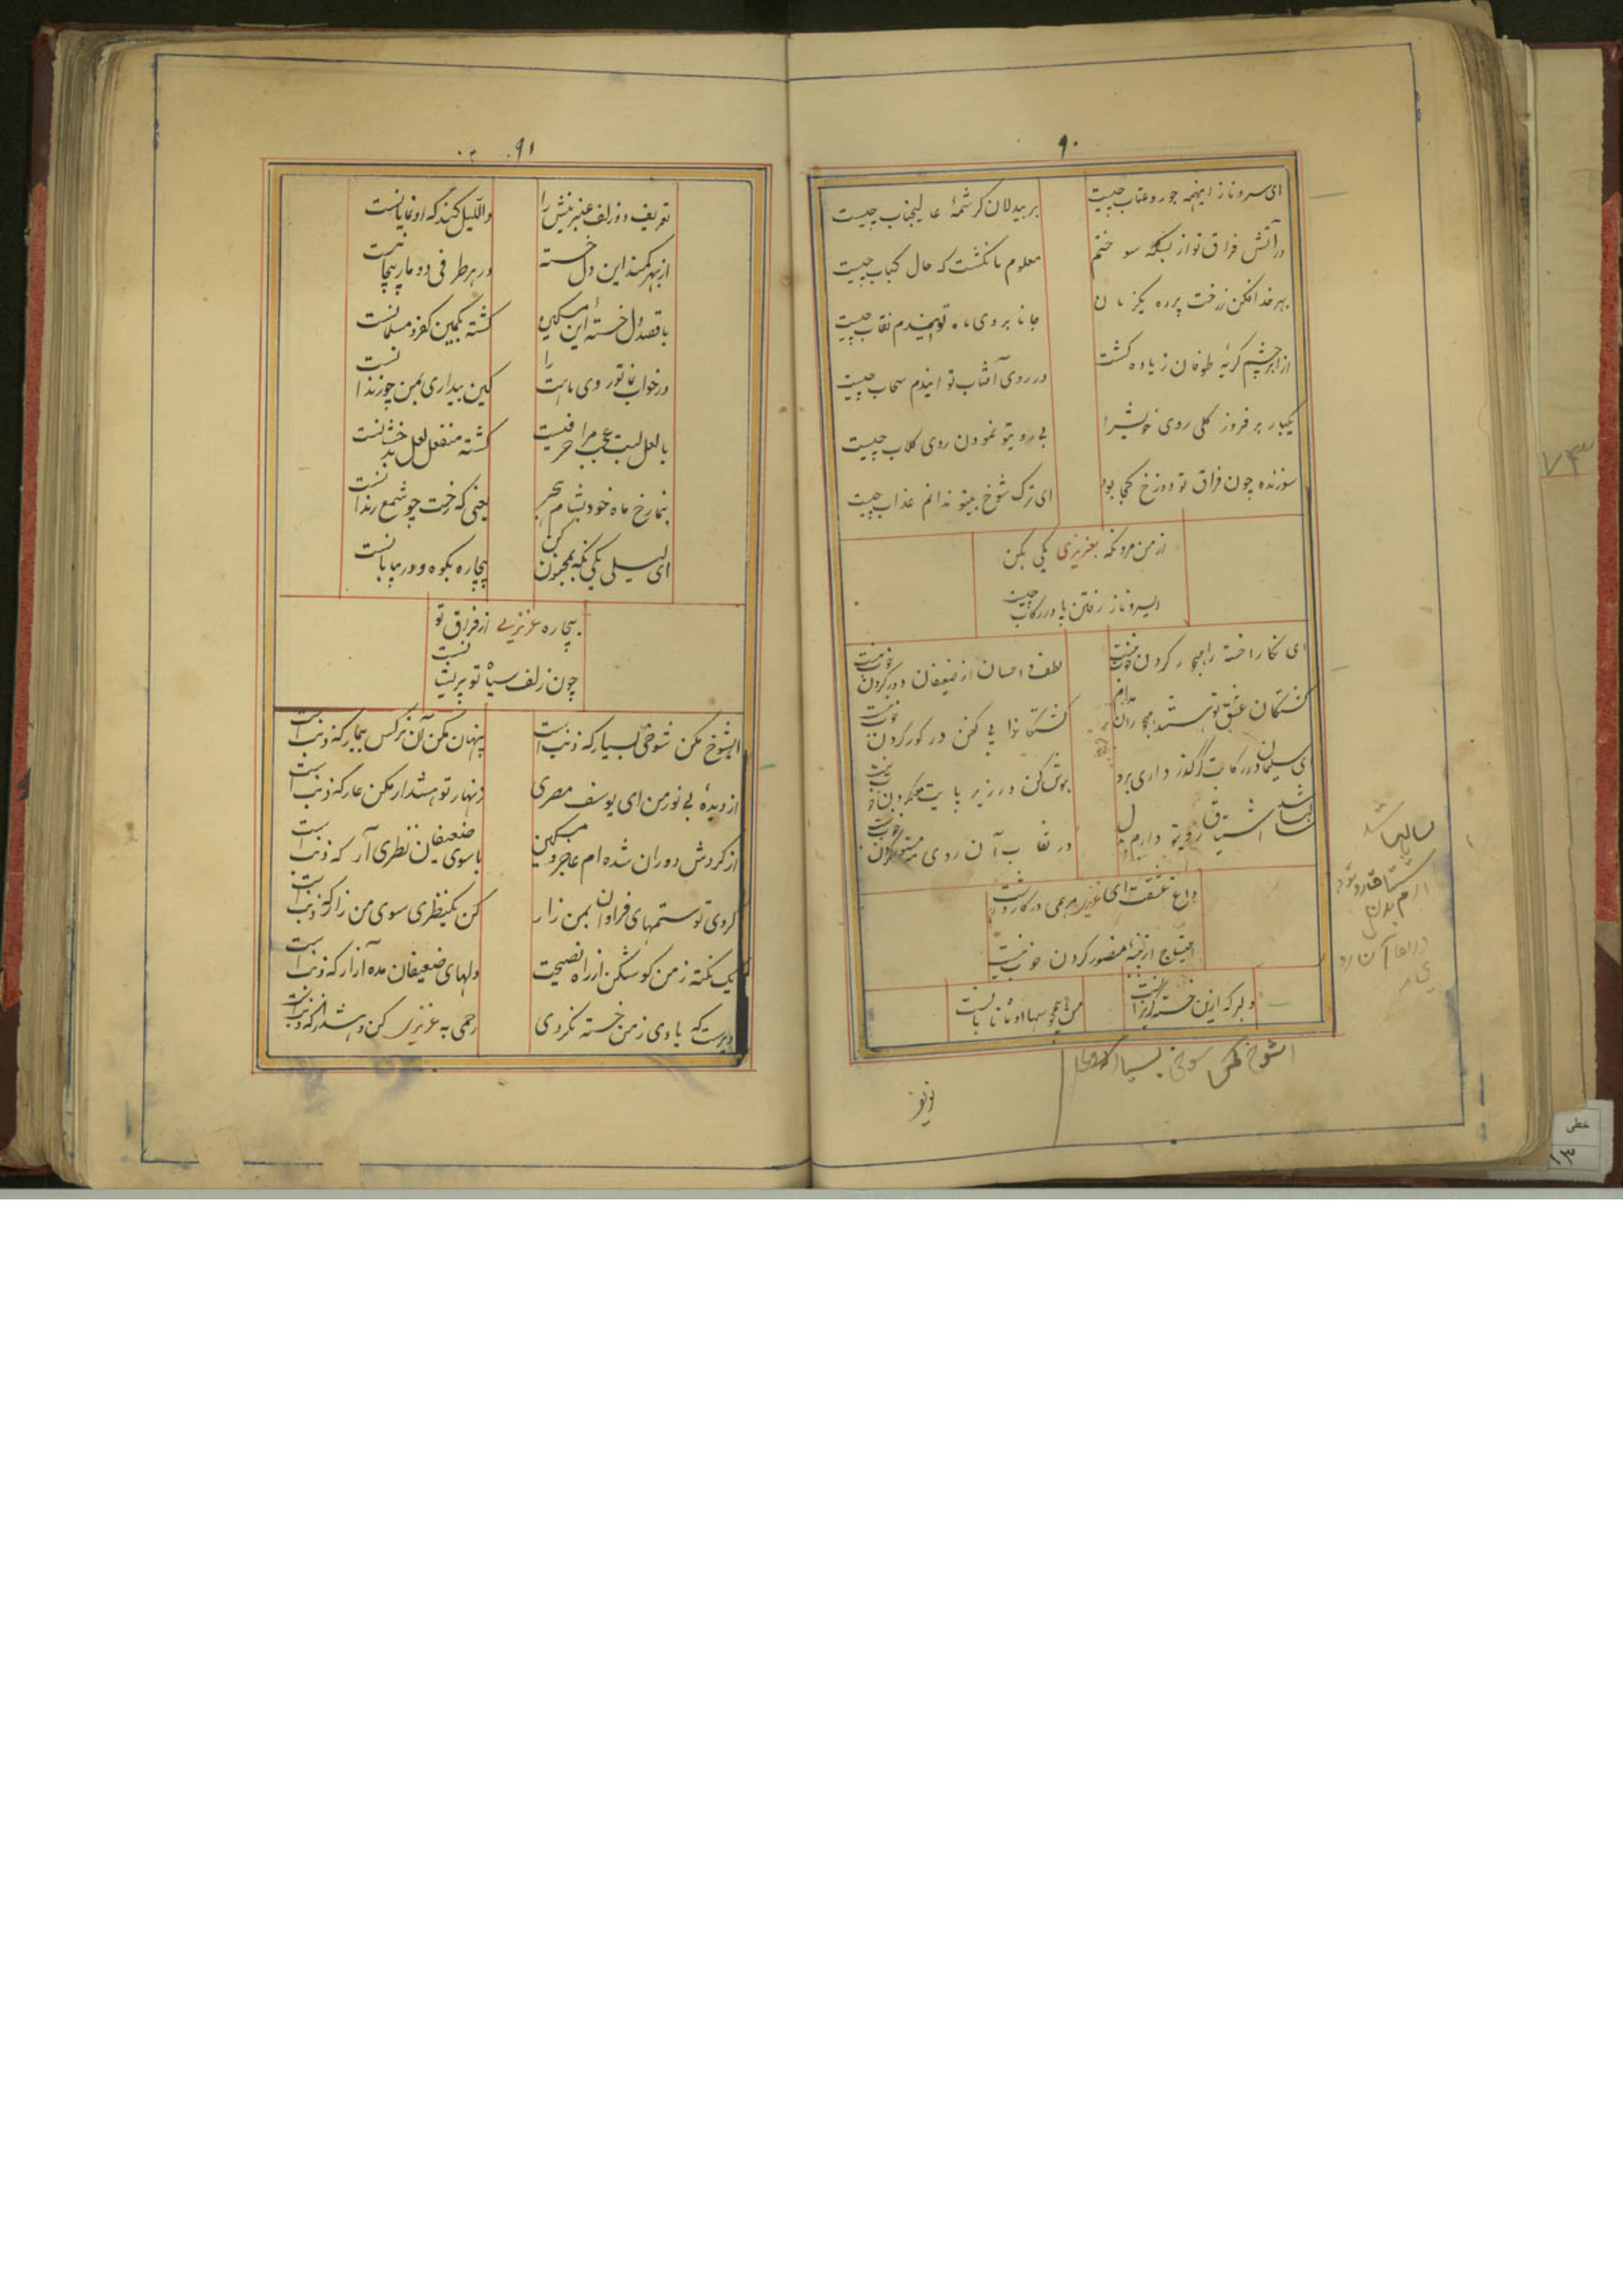 ۹۰
ای سرو ناز اینهمه جور و عتاب چیست
بر بیدلان کرشمهٔ عالیجناب چیست
در آتش فراق تو از بسکه سوختم
معلوم ما نکشت که حال کباب چیست
بهر خدا فکن ز رخت پرده یکزمان
جانا بروی ماه تو اینهمدم نقاب چیست
از ابر چشم کریهٔ طوفان زیاده کشت
در روی آفتاب تو ایندم سحاب چیست
یکبار بر فروز کلی روی خویشرا
بی رویتو نمودن روی کلاب چیست
سوزنده چون فراق تو دوزخ کجا بود
ای ترک شوخ بیتو ندانم عذاب چیست
از من مرو نکه بعزیزی یکی بکن
ایسرو ناز رفتن پا در رکاب چیست
ای نکارا خسته را مهجور کردن خوب نیست
لطف و احسان از ضعیفان دور کردن خوب نیست
کشتکان عشق تو هستند مهجوران مدام
کشتکانرا بی کفن در کور کردن خوب نیست
ای سلیمان در رکابت کذر داری برو
در زیر پایت کردن خوب نیست
سالها شد اشتیاق رویتو دارم بدل
در نقاب آن روی مستور کردن خوب نیست
داغ عشقت ای عزیز
احتیاج از پنبهٔ منصور کردن خوب نیست
دلبر که ازین خسته کریزانست
من همچو سها او تابانست
ایشوخ مکن شوخی بسیار که
سالها شد
۹۱
تعریف دو زلف عنبرینش را
واللیل کند که او نمایانست
از بهر کمند این دل خسته
در هر طرفی دو مار پیچانست
با قصد دل خستهٔ این مسکین
کشته بکمین کفر و مسلمانست
در خواب نما تو روی ماهت را
کین بیداری بمن چو زندانست
با لعل لبت عجب مرا حرفیست
کشته منفعل لعل بدخشانست
بنما رخ ماه خود بشام هجر
یعنی که رخت چو شمع رندانست
ای لیلی یکی نکه بمجنون کن
بیچاره بکوه و در بیابانست
بیچاره عزیزی از فراق تو
چون زلف سیاه تو پریشانست
ایشوخ مکن شوخی بسیار که ذنبست
پنهان مکن آن نرکس بیمار که ذنبست
از دیدهٔ بی نور من ای یوسف مصری
زنهار تو هشدار مکن عار که ذنبست
از کردش دوران شده‌ام عاجز و مسکین
با سوی ضعیفان نظری آر که ذنبست
کردی تو ستمهای فراوان بمن زار
کن یکنظری سوی من زار که ذنبست
یک نکته ز من کوش کن از راه نصیحت
دلهای ضعیفان مده آزار که ذنبست
دیرست که یادی ز من خسته نکردی
رحمی به عزیزی کن و هشدار که ذنبست
۷۳
خطی